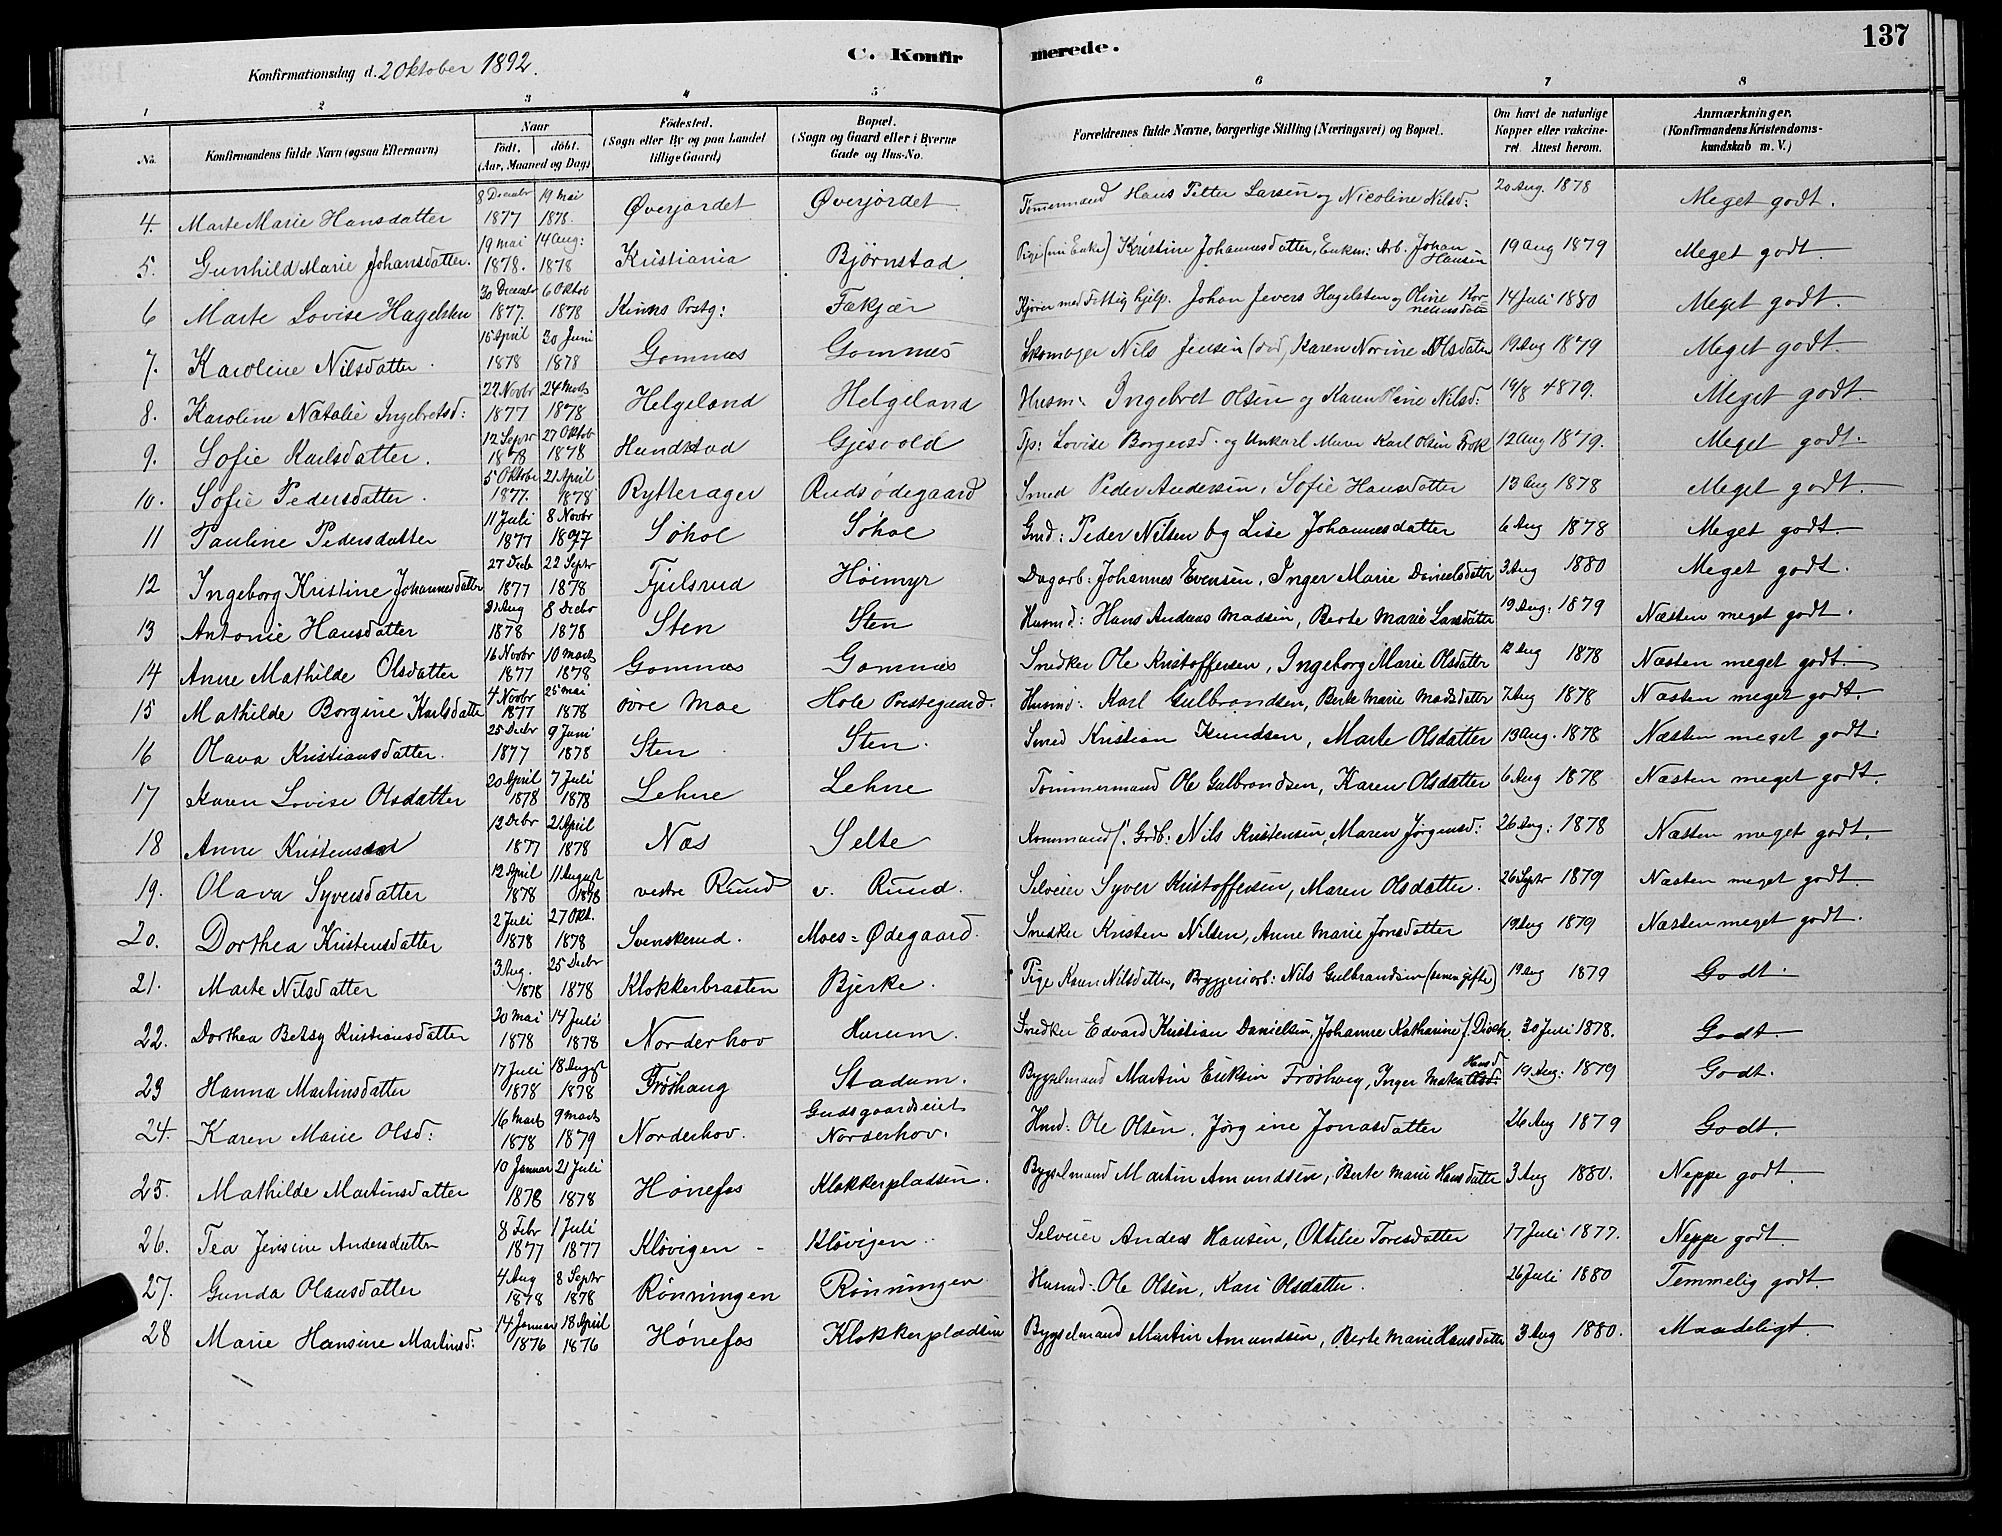 137
Konfirmationsdag d. 2 Oktober 1892.
C. Konfirmerede.
1 2 3 4 5 6 7 8
No. Konfirmandens fulde Navn (ogsaa Efternavn) Naar Födt. döbt. (Aar, Maaned og Dag) Födested. (Sogn eller By og paa Landet tillige Gaard) Bopæl. (Sogn og Gaard eller i Byerne Gade og Hus-No. Forældrenes fulde Navne, borgerlige Stilling (Næringsvei) og Bopæl. Om havt de naturlige Kopper eller vakcineret. Attest herom. Anmærkninger. (Konfirmandens Kristendomskundskab m. V.)
4. Marte Marie Hansdatter 8 Decembr 1877 19 Mai 1878. Øverjordet Øverjordet Tømermand Hans Petter Larsen og Nicoline Nilsd: 20 Aug. 1878 Meget godt.
5. Gunhild Marie Johansdatter. 19 Mai 1878. 14 Aug: 1878 Kristiania Bjørnstad Pige (nu Enke) Kristine Johannesdatter, Enkem: Arb. Johan Hansen 19 Aug 1879 Meget godt.
6 Marte Lovise Hagelsten 30 Decembr 1877. 6 Oktob 1878 Kinns Prstg: Fakjær med Fattighjelp. Johan Jevers Hagelsten og Oline Korneliusdatter 14 Juli 1880 Meget godt.
7. Karoline Nilsdatter. 15 April 1878 30 Juni 1878 Gomnæs Gomnæs Skomager Nils Jensen (død) Karen Norine Olsdatter 19 Aug 1879 Meget godt.
8. Karoline Natalie Ingebretsd: 22 Novbr 1877 24 Marts 1878 Helgeland Helgeland Husm: Ingebret Olsen og Karen Oline Nilsd: 19/8 1879. Meget godt.
9. Sofie Karlsdatter. 12 Septr 1878 27 Oktob 1878 Hundstad Gjesvold Tjs: Lovise Borgersd. og Unkarl Murer Karl Olsen Frok 12 Aug 1879. Meget godt.
10. Sofie Pedersdatter. 5 Oktobr 1877. 21 April 1878 Rytterager Rudsødegaard Smed Peder Andersen, Sofie Hansdatter 13 Aug 1878 Meget godt.
11 Pauline Pedersdatter 11 Juli 1877 8 Novbr 1877 Søhol Søhol Gmd: Peder Nilsen og Lise Johannesdatter 6 Aug 1878 Meget godt.
12 Ingeborg Kristine Johannesdatter 27 Decb 1877 22 Septr 1878 Tjelsrud Høimyr Dagarb: Johannes Evensen, Inger Marie Danielsdatter 3 Aug 1880 Meget godt.
13 Antonie Hansdatter 31 Aug 1878 8 Decbr 1878 Sten Sten Husmd: Hans Andreas Madsen, Berte Marie Larsdatter 19 Aug: 1879 Næsten meget godt.
14 Anne Mathilde Olsdatter 16 Novbr 1877 10 Marts 1878 Gomnæs Gomnæs Snedker Ole Kristoffersen, Ingeborg Marie Olsdatter 12 Aug 1878 Næsten meget godt.
15 Mathilde Borgine Karlsdatter 4 Novbr 1877 25 Mai 1878 øvre Moe Hole Prestegaard. Husmd: Karl Gulbrandsen, Berte Marie Madsdatter 7 Aug 1878 Næsten meget godt.
16 Olava Kristiansdatter. 25 Decbr 1877 9 Juni 1878 Sten Sten. Smed Kristian Knudsen, Marte Olsdatter 13 Aug. 1878 Næsten meget godt.
17 Karen Lovise Olsdatter 20 April 1878 7 Juli 1878 Lehne Lehne Tømmermand Ole Gulbrandsen, Karen Olsdatter 6 Aug 1878 Næsten meget godt.
18 Anne Kristensdad 12 Decbr 1877 21 April 1878 Næs Selte Nils Kristensen, Maren Jørgensd: 26 Aug: 1878 Næsten meget godt.
19. Olava Syversdatter 12 April 1878 11 August 1878 vestre Ruud v. Ruud. Selveier Syver Kristoffersen, Maren Olsdatter. 26 Septr 1879 Næsten meget godt.
20. Dorthea Kristensdatter 2 Juli 1878 27 Okt. 1878 Svenskerud. Moes=Ødegaard. Snedker Kristen Nilsen, Anne Marie Jonsdatter 19 Aug 1879 Næsten meget godt.
21. Marte Nilsdatter 3 Aug. 1878 25 Decbr 1878 Klokkerbraaten Bjerke. Pige Karen Nilsdatter, Bryggeriarb: Nils Gulbrandsen (senen gifte) 19 Aug 1879 Godt.
22. Dorthea Betsy Kristiansdatter 20 Mai 1878 14 Juli 1878 Norderhov Harum. Snedker Edvard Kristian Danielsen, Johanne Katharine f. Dioch. 30 Juli 1878. Godt.
23 Hanna Martinsdatter 17 Juli 1878 18 August 1878 Frøshaug Stadum. Bygselmand Martin Eriksen Frøshaug, Inger Maria Olsd: Hansd 19 Aug: 1879 Godt.
24. Karen Marie Olsd: 16 Marts 1878 9 Marts 1879 Norderhov. Gudsgaardseiet Norderhov. Hmd: Ole Olsen, Jørgine Jonasdatter 26 Aug 1879 Godt.
25. Mathilde Martinsdatter 10 Januar 1878 21 Juli 1878 Hønefos Klokkerpladsen. Bygselmand Martin Amundsen, Berte Marie Hansdatter 3 Aug 1880. Neppe godt.
26. Tea Jensine Andersdatter 8 Febr 1877 1 Juli 1877 Kløvigen - Kløvigen Selveier Anders Hansen, Ottilie Toresdatter 17 Juli 1877. Neppe godt.
27. Gunda Olausdatter 4 Aug 1878 8 Septr 1878 Rønningen Rønningen Husmd: Ole Olsen, Kari Olsdatter. 26 Juli 1880 Temmelig godt.
28 Marie Hansine Martinsd: 14 Januar 1876 18 April 1876 Hønefos Klokkerpladsen Bygselmand Martin Amundsen, Berte Marie Hansdatter 3 Aug 1880. Maadeligt.